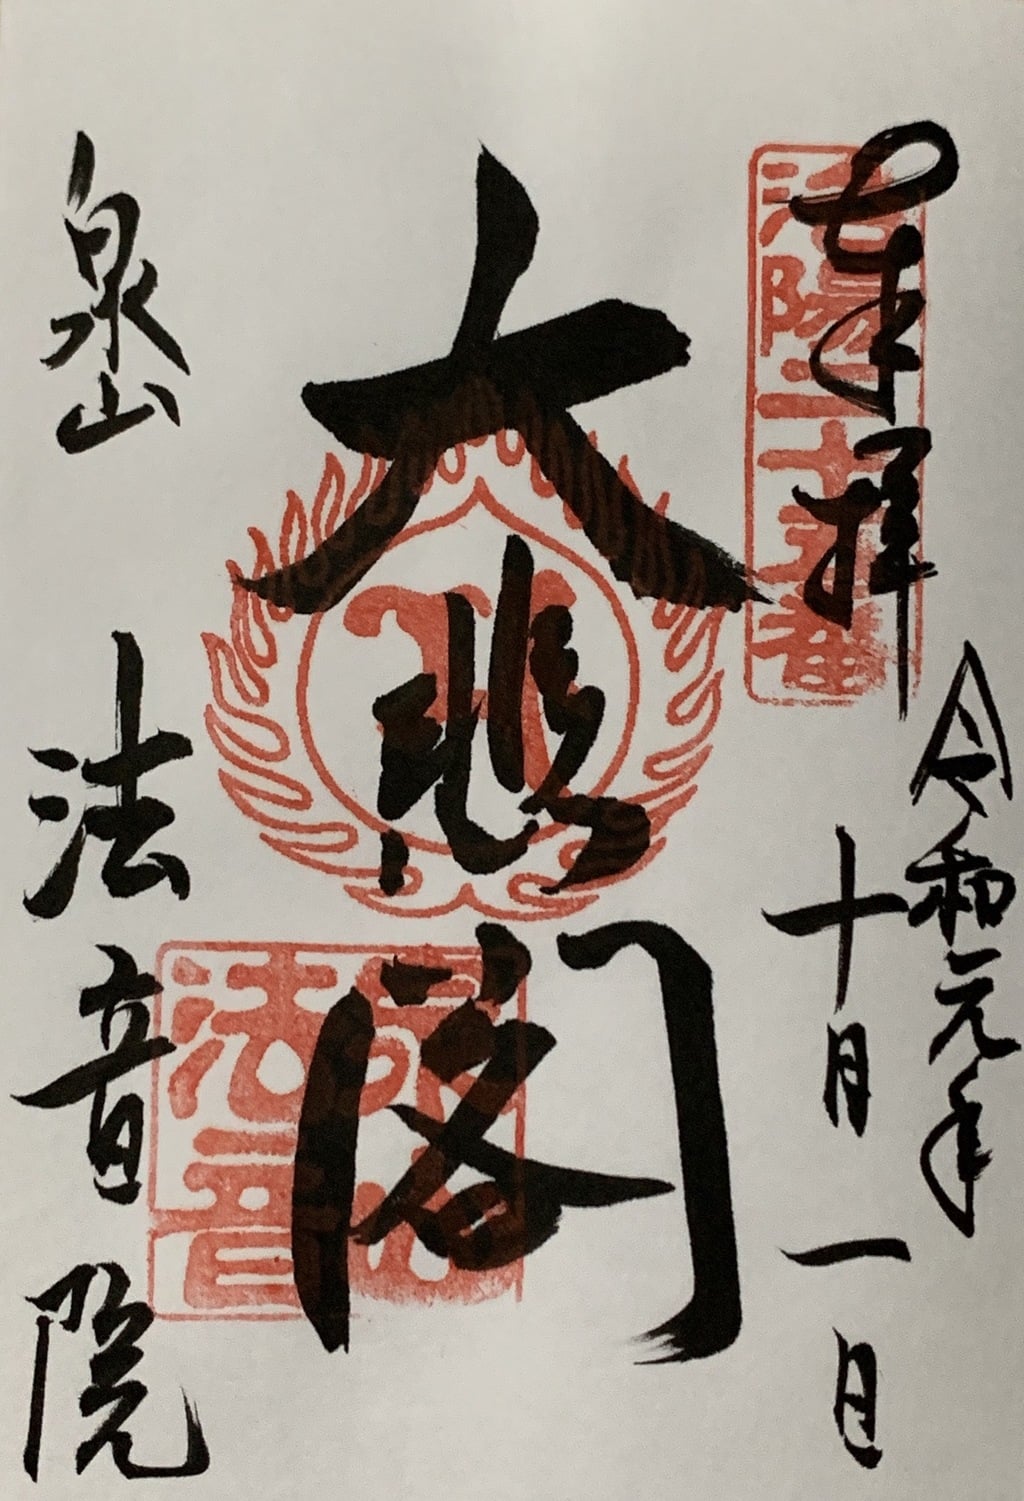 奉拝
洛陽二十五番
令和元年
十月一日
大悲閣
泉山
法音
泉山 法音院